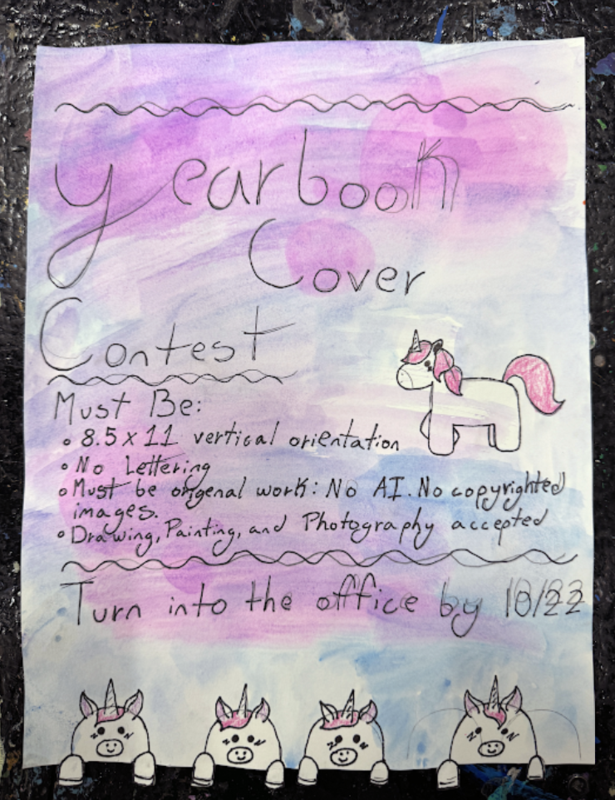 Yearbook
Cover
Contest
Must Be:
• 8.5 x 11 vertical orientation
• No Lettering
• Must be origenal work: No AI. No copyrighted
images.
• Drawing, Painting, and Photography accepted
Turn into the office by 10/22